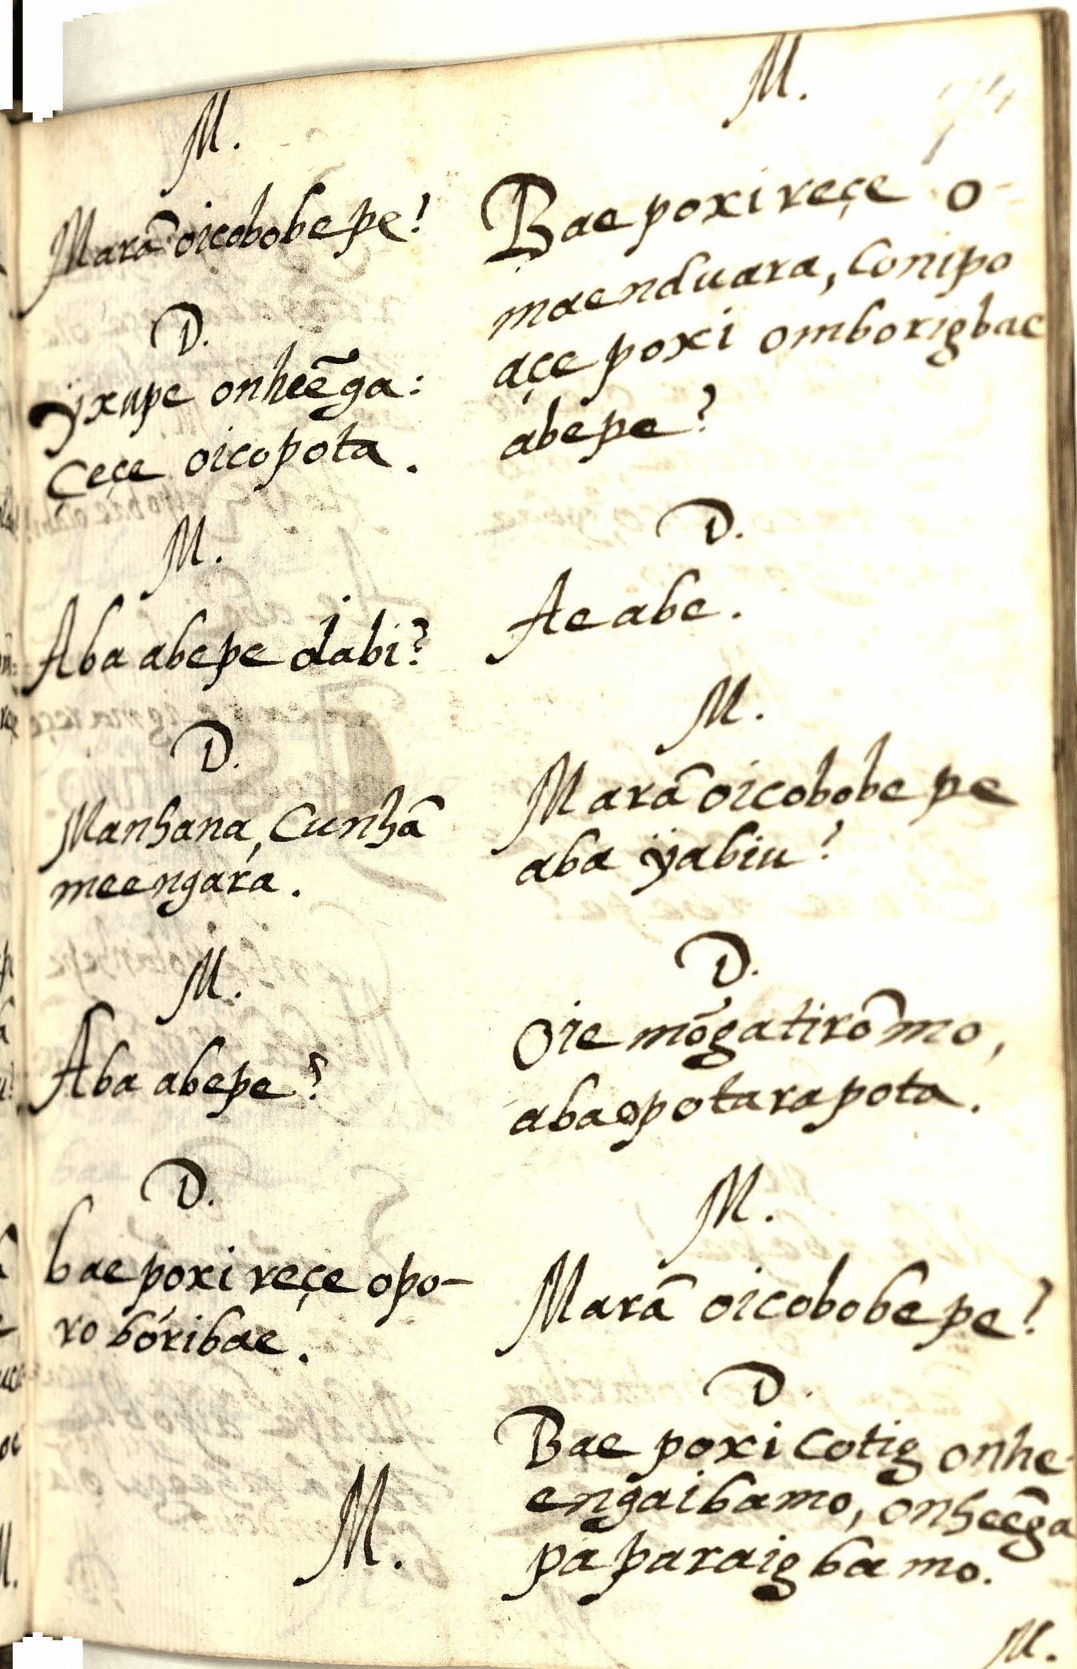 M.
Marã oicobobepe?
D.
yxupe onheẽga:
Çeçe oicopota.
M.
Aba abepe dabi?
D.
Manhana, Cunhã
meengára.
M.
Aba abepe?
D.
bae poxi reçe opo-
ro bóribae.
M.
M.
Bae poxi reçe o-
maenduara, Conipo
açe poxi omborigbae
abepe?
D.
Ae abe.
M.
Marã oicobobe pe
aba ÿabiu?
D.
Oie mõgatirõmo,
abaopotarapota.
M.
Marã oicobobe pe?
D.
Bae poxi cotig onhe-
engaibamo, onheẽga
paparaigbamo.
M.